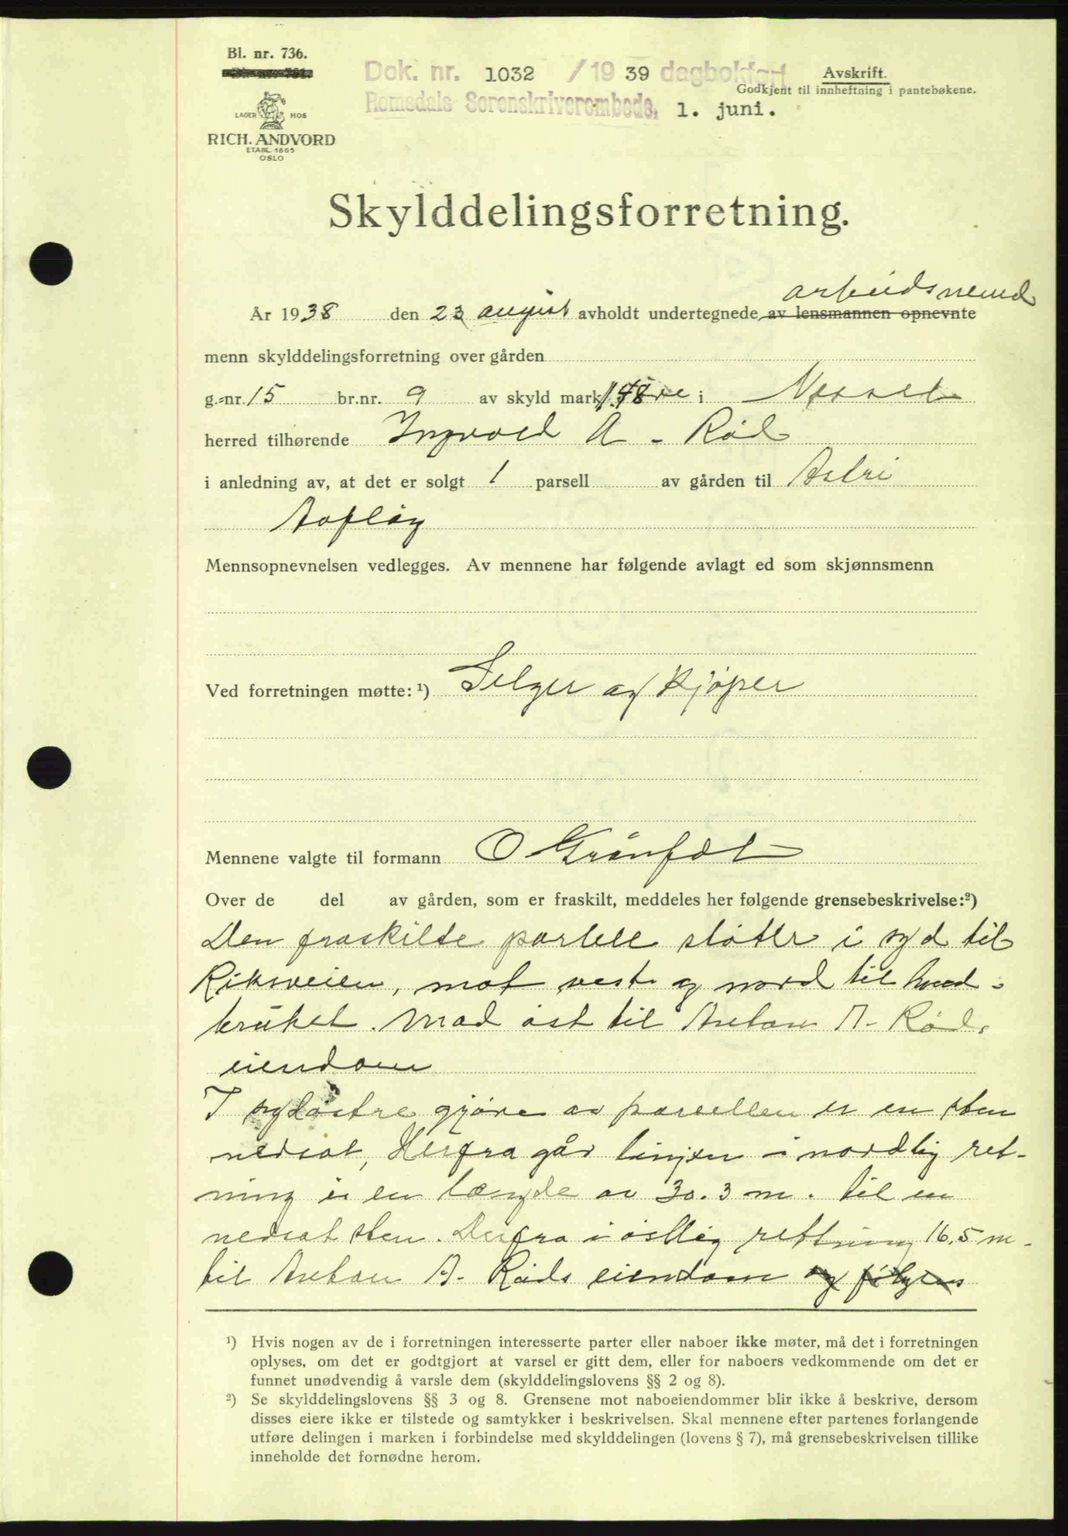 Bl. nr. 736.
LAGER HOS
RICH. ANDVORD
ETABL. 1865
OSLO
Dok. nr. 1032 /19 39 dagbokført
Romsdals Sorenskriverembede, 1. juni.
Avskrift.
Godkjent til innheftning i pantebøkene.
Skylddelingsforretning.
arbeidsnemd
År 1938 den 23 august avholdt undertegnede av lensmannen opnevnte
menn skylddelingsforretning over gården
g.-nr. 15 br.nr. 9 av skyld mark 1.48 i Nesset
herred tilhørende Ingvald A. Rød
i anledning av, at det er solgt 1 parsell av gården til Astri
Aafløy
Mennsopnevnelsen vedlegges. Av mennene har følgende avlagt ed som skjønnsmenn
Ved forretningen møtte: ¹) Selger og kjøper
Mennene valgte til formann O Grønfdt
Over de del av gården, som er fraskilt, meddeles her følgende grensebeskrivelse:²)
Den fraskilte parsell støter i syd til
Riksveien, mot vest og nord til hoved-
bruket. Mod øst til Anton A. Røds
eiendom
I sydøstre gjøre av parsellen er en sten
nedsat, Herfra går linjen i nordlig ret-
ning i en længde av 30.3 m. til en
nedsat sten. Derfra i østlig rettning 16,5 m.
til Anton A. Røds eiendom og følgens
¹) Hvis nogen av de i forretningen interesserte parter eller naboer ikke møter, må det i forretningen
oplyses, om det er godtgjort at varsel er gitt dem, eller for naboers vedkommende om det er
funnet unødvendig å varsle dem (skylddelingslovens §§ 2 og 8).
²) Se skylddelingslovens §§ 3 og 8. Grensene mot naboeiendommer blir ikke å beskrive, dersom
disses eiere ikke er tilstede og samtykker i beskrivelsen. Skal mennene efter partenes forlangende
utføre delingen i marken i forbindelse med skylddelingen (lovens § 7), må grensebeskrivelsen tillike
inneholde det fornødne herom.